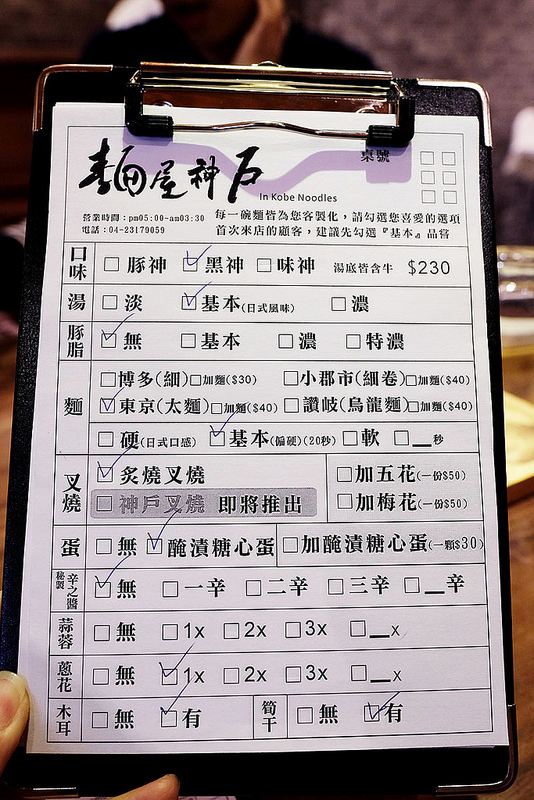 麵屋神戶 In Kobe Noodles 桌號 □□□□□□
營業時間：pm05:00-am03:30 每一碗麵皆為您客製化，請勾選您喜愛的選項
電話：04-23179059 首次來店的顧客，建議先勾選『基本』品嘗
口味 □豚神 ☑黑神 □味神 湯底皆含牛 $230
湯 □淡 ☑基本(日式風味) □濃
豚脂 ☑無 □基本 □濃 □特濃
麵 □博多(細)□加麵($30) □小郡市(細卷)□加麵($40)
☑東京(太麵)□加麵($40) □讚岐(烏龍麵)□加麵($40)
□硬(日式口感) ☑基本(偏硬)(20秒) □軟 □__秒
叉燒 ☑炙燒叉燒 □加五花(一份$50)
□神戶叉燒 即將推出 □加梅花(一份$50)
蛋 □無 ☑醃漬糖心蛋 □加醃漬糖心蛋(一顆$30)
秘製辛之醬 ☑無 □一辛 □二辛 □三辛 □__辛
蒜蓉 □無 □1x □2x □3x □__x
蔥花 □無 ☑1x □2x □3x □__x
木耳 □無 ☑有 筍干 □無 ☑有